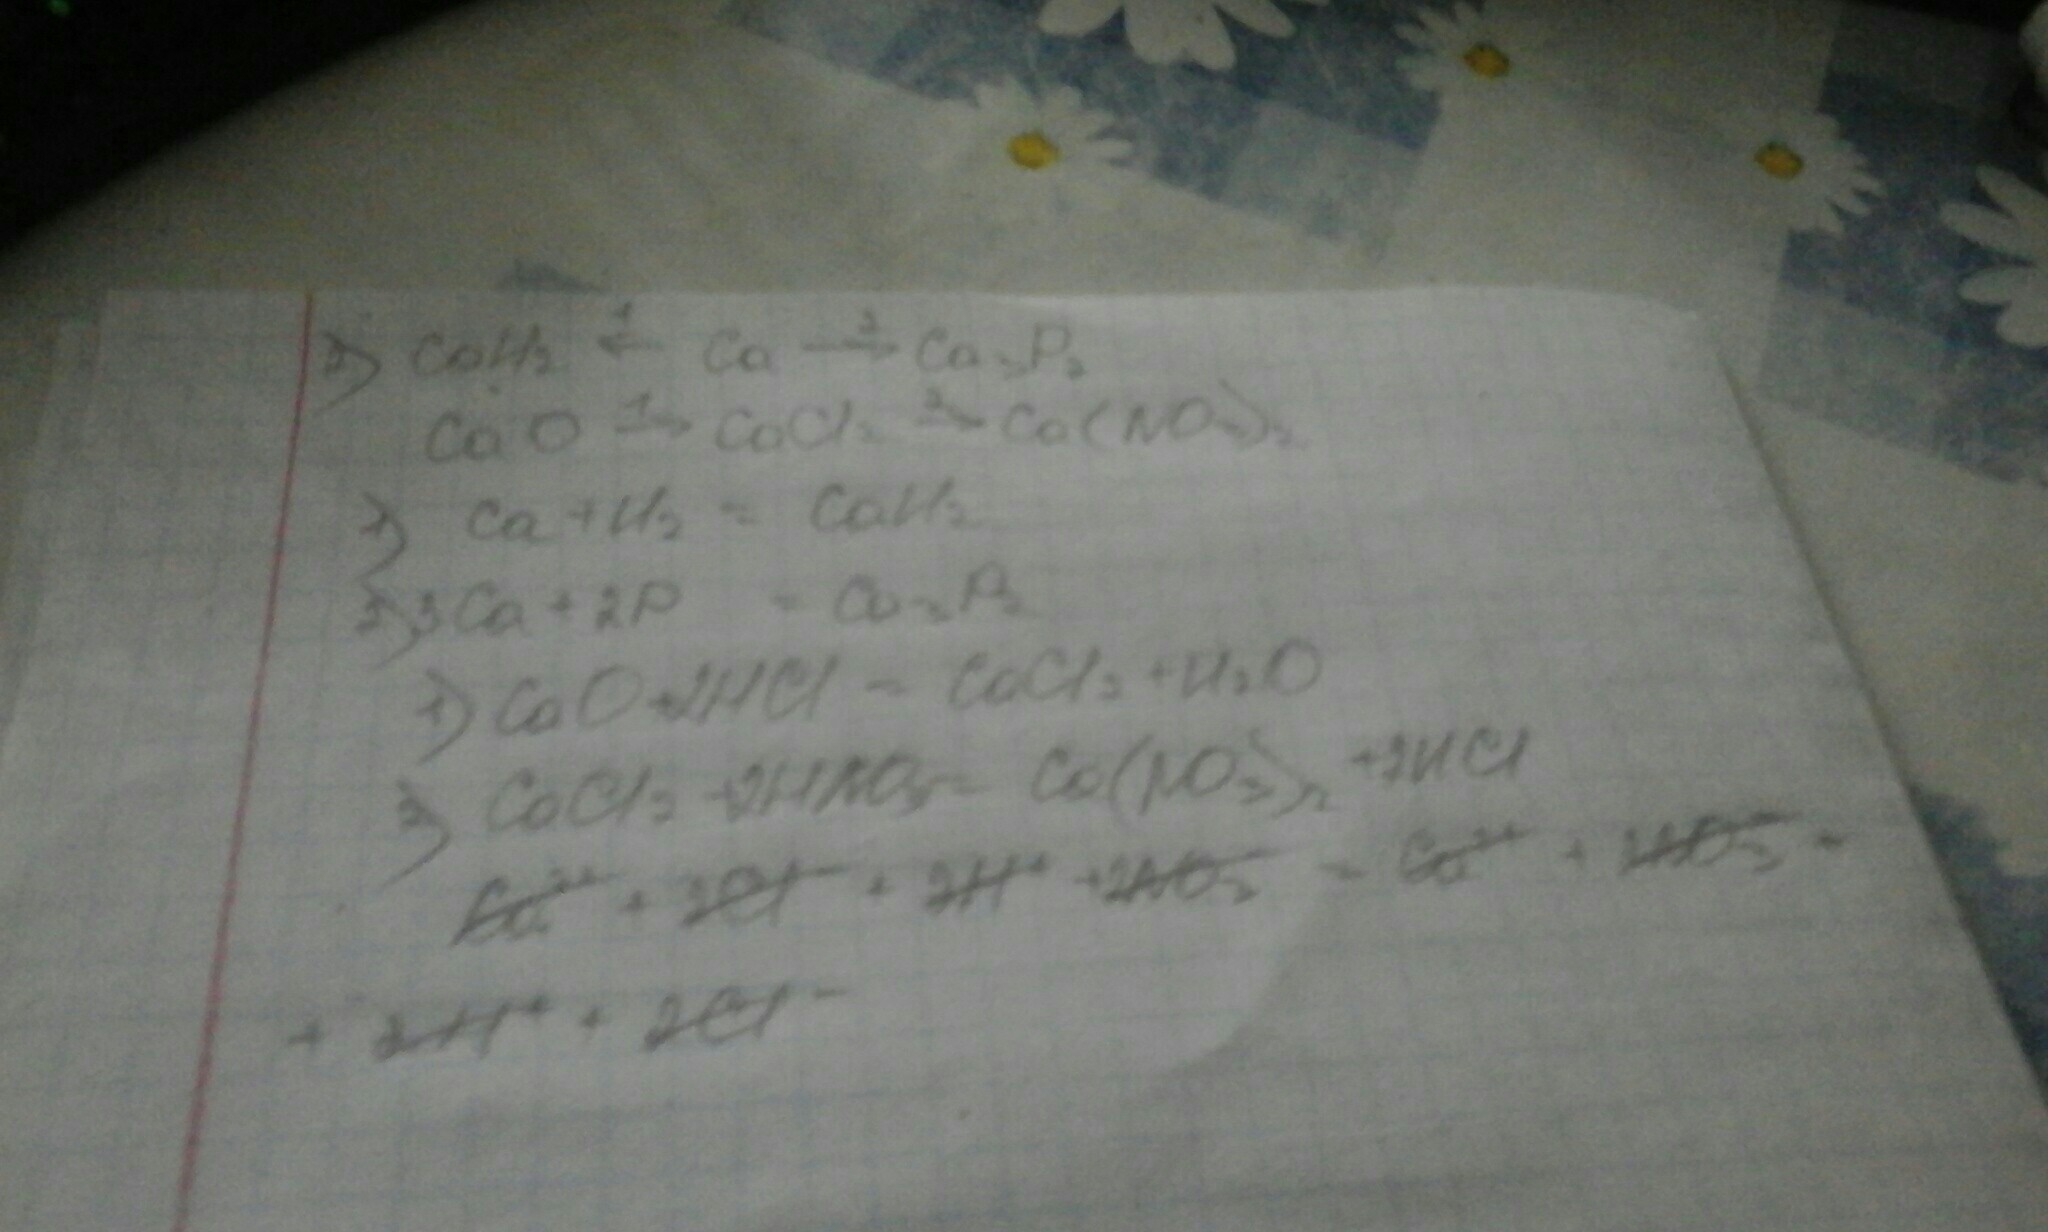 2) CaH₂ ←¹ Ca →² Ca₃P₂
CaO →¹ CaCl₂ →² Ca(NO₃)₂
1) Ca + H₂ = CaH₂
2) 3Ca + 2P = Ca₃P₂
1) CaO + 2HCl = CaCl₂ + H₂O
2) CaCl₂ + 2HNO₃ = Ca(NO₃)₂ + 2HCl
Ca²⁺ + 2Cl⁻ + 2H⁺ + 2NO₃⁻ = Ca²⁺ + 2NO₃⁻ +
+ 2H⁺ + 2Cl⁻